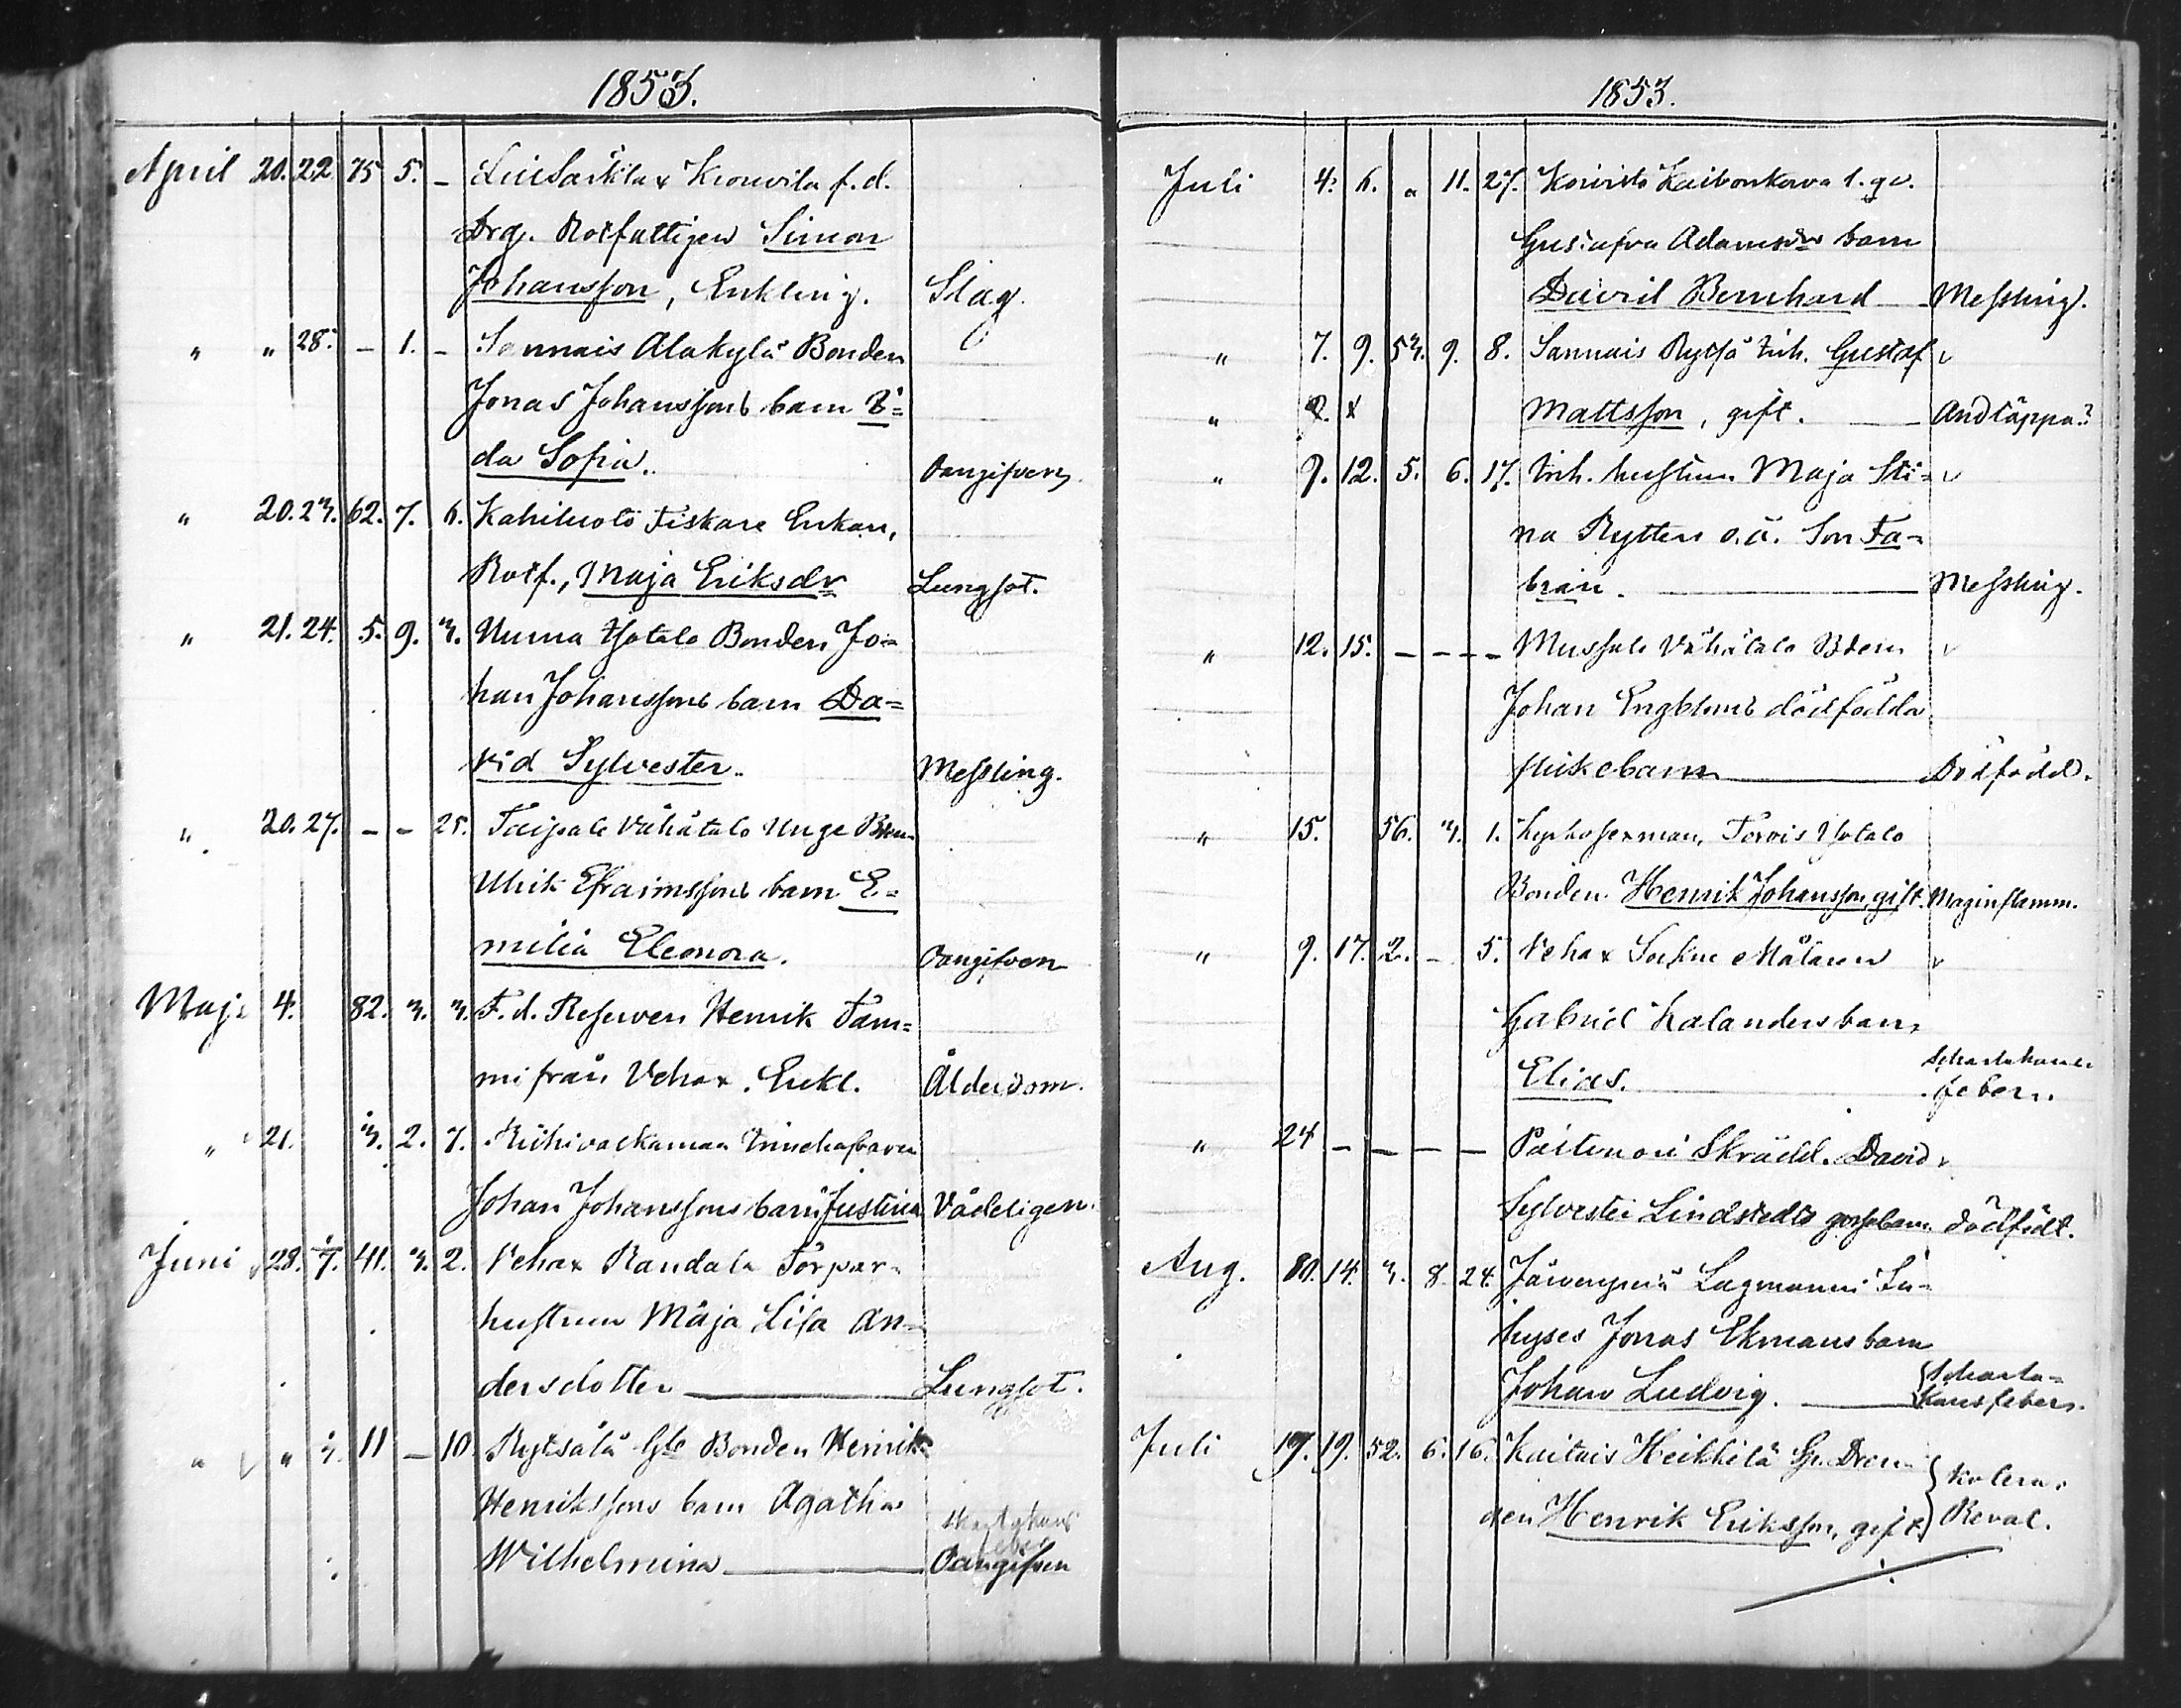 1853.
April 20. 22. 75 5. – Krouvila f. d.
Drg. Rotfattigen Simon
Johansson, Enkling. Slag.
" " 28. – 1. – Sannais Alakylä Bonden
Jonas Johanssons barn I=
da Sofia. Oangifven
" 20. 23. 62. 7. 6. Kahiluoto Fiskare Enkan,
Rotf., Maja Eriksdr Lungsot.
" 21. 24. 5. 9. 3. Numa Yotalo Bonden Jo=
han Johanssons barn Da=
vid Sylvester. Messling.
" 20. 27. – – 25. Taipale Vähätalo Unge Bn
Ulrik Efraimssons barn E=
milia Eleonora. Oangifven
Maji 4. 82. 3. 3. F. d. Reserven Henrik Tam=
mi från Vehax. Enkl. Ålderdom.
" 21. 3. 2. 7. Riihivalkamaa
Johan Johanssons barn Justina Vådeligen.
Juni 28. 7. 41. 3. 2. Vehax Randala Torpar=
hustrun Maja Lisa An=
dersdotter Lungsot.
" " 3. 11 – 10. Rytsälä Gle Bonden Henrik
Henrikssons barn Agatha
Wilhelmina Oangifven
1853.
Juli 4. 6. " 11. 27. Koivisto
Gustafva Adamsdrs barn
David Bernhard Messling.
" 7. 9. 53. 9. 8. Sannais Inh. Gustaf
" Mattsson, gift. Andtäppa?
" 9. 12. 5. 6. 17. Inh. hustrun Maja Sti=
na Rytters o.ä. Son Fa=
bian. Messling.
" 12. 15. – – – Mussalo Vähätalo Bden
Johan Engbloms dödfödda
flickebarn Dödfödd.
" 15. 56. 3. 1. Torvis Yotalo
Bonden Henrik Johansson, gift. Maginflamm.
" 9. 17. 2. – 5. Vehax Målaren
Gabriel Kalanders barn
Elias. Scharlakans
feber.
" 24 – – – – Skrädd. David
Sylvester Lindstedts gossebarn dödfödt.
Aug. 14. 3. 8. 24. Järvenpää Lagmanni In=
hyses Jonas Ekmans barn
Johan Ludvig. Scharla=
kansfeber.
Juli 19. 52. 6. 16. Kaitais Heikkilä Dren=
gen Henrik Eriksson, gift. Kolera.
Reval.